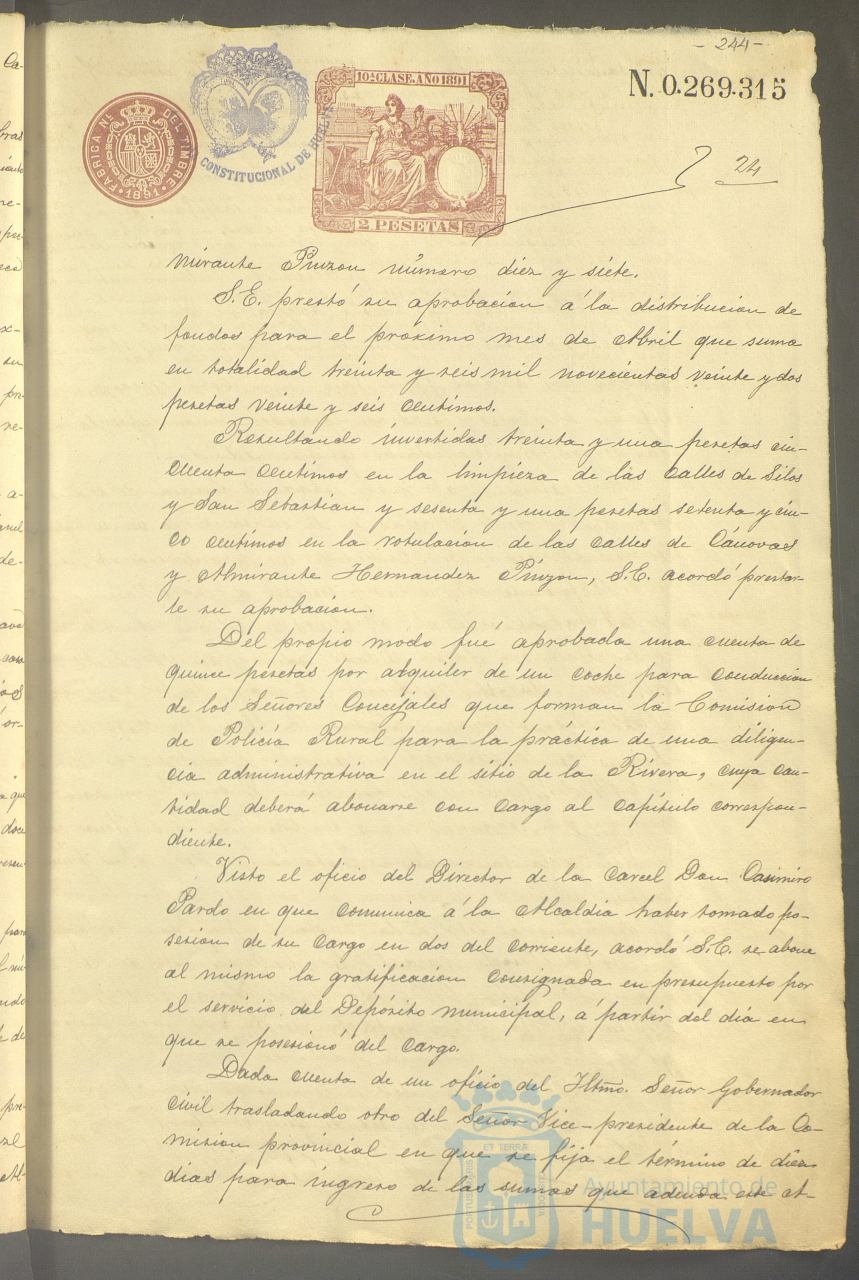 - 244 -
N. 0.269.315
10ª CLASE. AÑO 1891
FABRICA Nᴸ DEL TIMBRE
· 1891 ·
CONSTITUCIONAL DE HUELVA
2 PESETAS
24
mirante Pinzon número diez y siete.
S. E. prestó su aprobacion á la distribucion de
fondos para el próximo mes de Abril que suma
en totalidad treinta y seis mil novecientas veinte y dos
pesetas veinte y seis centimos.
Resultando invertidas treinta y una pesetas cin-
cuenta centimos en la limpieza de las calles de Silos
y San Sebastian y sesenta y una pesetas setenta y cin-
co centimos en la rotulacion de las calles de Cánovas
y Almirante Hernandez Pinzon, S. E. acordó prestar-
le su aprobacion.
Del propio modo fué aprobada una cuenta de
quince pesetas por alquiler de un coche para conduccion
de los Señores Concejales que forman la Comision
de Policía Rural para la práctica de una diligen-
cia administrativa en el sitio de la Rivera, cuya can-
tidad deberá abonarse con cargo al capítulo correspon-
diente.
Visto el oficio del Director de la Carcel Don Casimiro
Pardo en que comunica á la Alcaldía haber tomado po-
sesion de su cargo en dos del corriente, acordó S. E. se abone
al mismo la gratificacion consignada en presupuesto por
el servicio del Depósito municipal, á partir del dia en
que se posesionó del cargo.
Dada cuenta de un oficio del Iltmo. Señor Gobernador
civil trasladando otro del Señor Vice-presidente de la Co-
mision provincial en que se fija el término de diez
dias para ingreso de las sumas que adeuda este A-
Ayuntamiento de
HUELVA